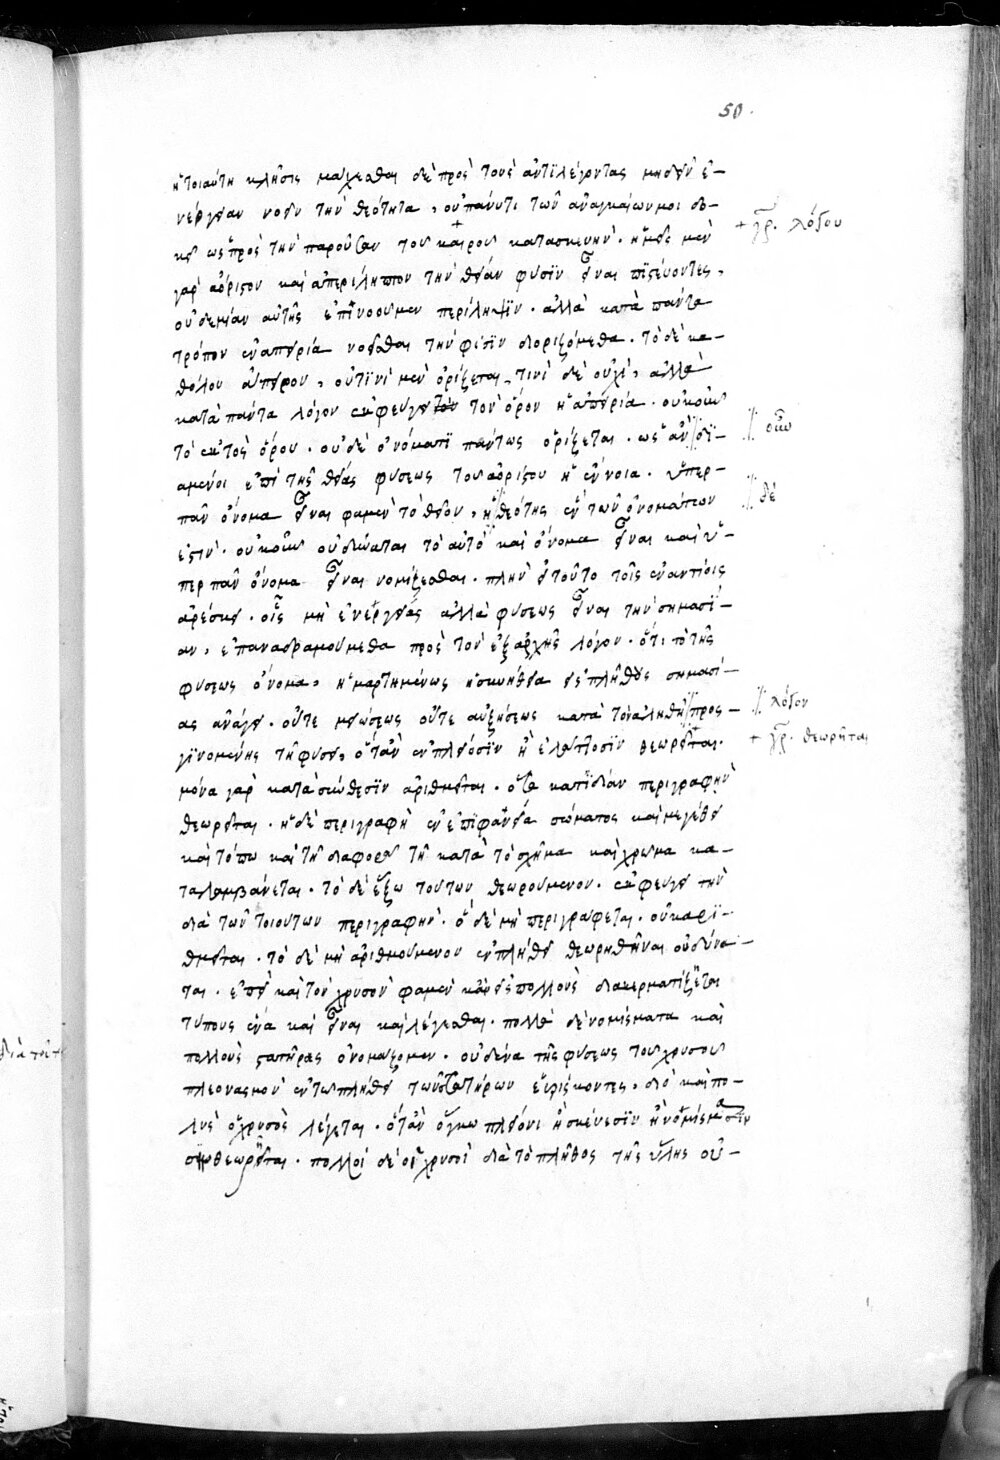 50.
ἡ τοιαύτη κλῆσις μάχεσθαι δὲ πρὸς τοὺς ἀντιλέγοντας μηδὲν ἐ-
νέργειαν νοεῖν τὴν θεότητα, οὐ πάνυ τι τῶν ἀναγκαίων μοι δο-
κεῖ ὡς πρὸς τὴν παροῦσαν τοῦ καιροῦ κατασκευήν. ἡμεῖς μὲν
+ γρ. λόγου
γὰρ ἀόριστον καὶ ἀπερίληπτον τὴν θείαν φύσιν εἶναι πιστεύοντες,
οὐδεμίαν αὐτῆς ἐπινοοῦμεν περίληψιν. ἀλλὰ κατὰ πάντα
τρόπον ἐν ἀπειρία νοεῖσθαι τὴν φύσιν διοριζόμεθα. τὸ δὲ κα-
θόλου ἄπειρον, οὐ τινὶ μὲν ὁρίζεται, τινὶ δὲ οὐχὶ, ἀλλὰ
κατὰ πάντα λόγον ἐκφεύγει τὸν ὅρον ἡ ἀπειρία. οὐκοῦν
τὸ ἐκτὸς ὅρου. οὐδὲ ὀνόματι πάντως ὁρίζεται. ὡς ἂν δι-
// οὖν
αμένοι ἐπὶ τῆς θείας φύσεως τοῦ ἀορίστου ἡ ἔννοια. ὑπερ-
πᾶν ὄνομα εἶναι φαμὲν τὸ θεῖον, ἡ θεότης ἓν τῶν ὀνομάτων
// θὲ
ἐστιν. οὐκοῦν οὐ δύναται τὸ αὐτὸ καὶ ὄνομα εἶναι καὶ ὑ-
περ πᾶν ὄνομα εἶναι νομίζεσθαι. πλὴν εἰ τοῦτο τοῖς ἐναντίοις
ἀρέσκει. οἷς μὴ ἐνεργείας ἀλλὰ φύσεως εἶναι τὴν σημασί-
αν, ἐπαναδραμούμεθα πρὸς τὸν ἐξ ἀρχῆς λόγον. ὅτι τὸ τῆς
φύσεως ὄνομα, ἡμαρτημένως ἡ συνήθεια εἰς πλήθους σημασί-
ας ἀνάγει. οὔτε μειώσεως οὔτε αὐξήσεως κατὰ τὸν ἀληθῆ προς-
// λόγον
γινομένης τῇ φύσει, ὅταν ἐν πλείοσιν ἢ ἐλάττοσιν θεωρεῖται.
+ γρ. θεωρῆται
μόνα γὰρ κατὰ σύνθεσιν ἀριθμεῖται. ὅσα κατ' ἰδίαν περιγραφὴν
θεωρεῖται. ἡ δὲ περιγραφὴ ἐν ἐπιφανείᾳ σώματος καὶ μεγέθει
καὶ τόπω καὶ τῇ διαφορᾷ τῇ κατὰ τὸ σχῆμα καὶ χρῶμα κα-
ταλαμβάνεται. τὸ δὲ ἔξω τούτων θεωρούμενον. ἐκφεύγει τὴν
διὰ τῶν τοιούτων περιγραφήν. ὃ δὲ μὴ περιγράφεται. οὐκ ἀρι-
θμεῖται. τὸ δὲ μὴ ἀριθμούμενον ἐν πλήθει θεωρηθῆναι οὐ δύνα-
ται. ἐπεὶ καὶ τὸν χρυσὸν φαμὲν κἂν εἰς πολλοὺς διακερματίζηται
τύπους ἕνα καὶ εἶναι καὶ λέγεσθαι. πολλὰ δὲ νομίσματα καὶ
πολλοὺς στατῆρας ὀνομάζομεν. οὐδένα τῆς φύσεως τοῦ χρυσοῦ
πλεονασμὸν ἐν τῶ πλήθει τῶν στατήρων εὑρίσκοντες, διὸ καὶ πο-
λὺς ὁ χρυσὸς λέγεται. ὅταν ὄγκω πλείονι ἢ σκεύεσιν ἢ νομίσμασιν
θεωρῆται. πολλοὶ δὲ οἱ χρυσοὶ διὰ τὸ πλῆθος τῆς ὕλης οὐ-